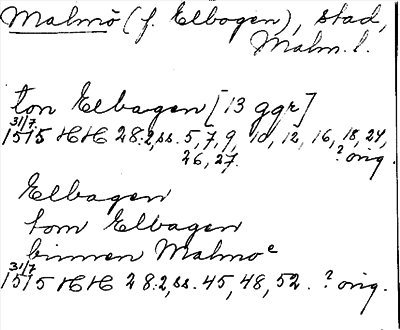 Malmö (f. Elbogen), stad,
Malm. l.
ton Elbagen [13 ggr]
31/7 1515 HH 28:2, ss. 5, 7, 9, 10, 12, 16, 18, 24,
26, 27. ? orig.
Elbagen
tom Elbagen
binnen Malmoe
31/7 1515 HH 28:2, ss. 45, 48, 52. ? orig.